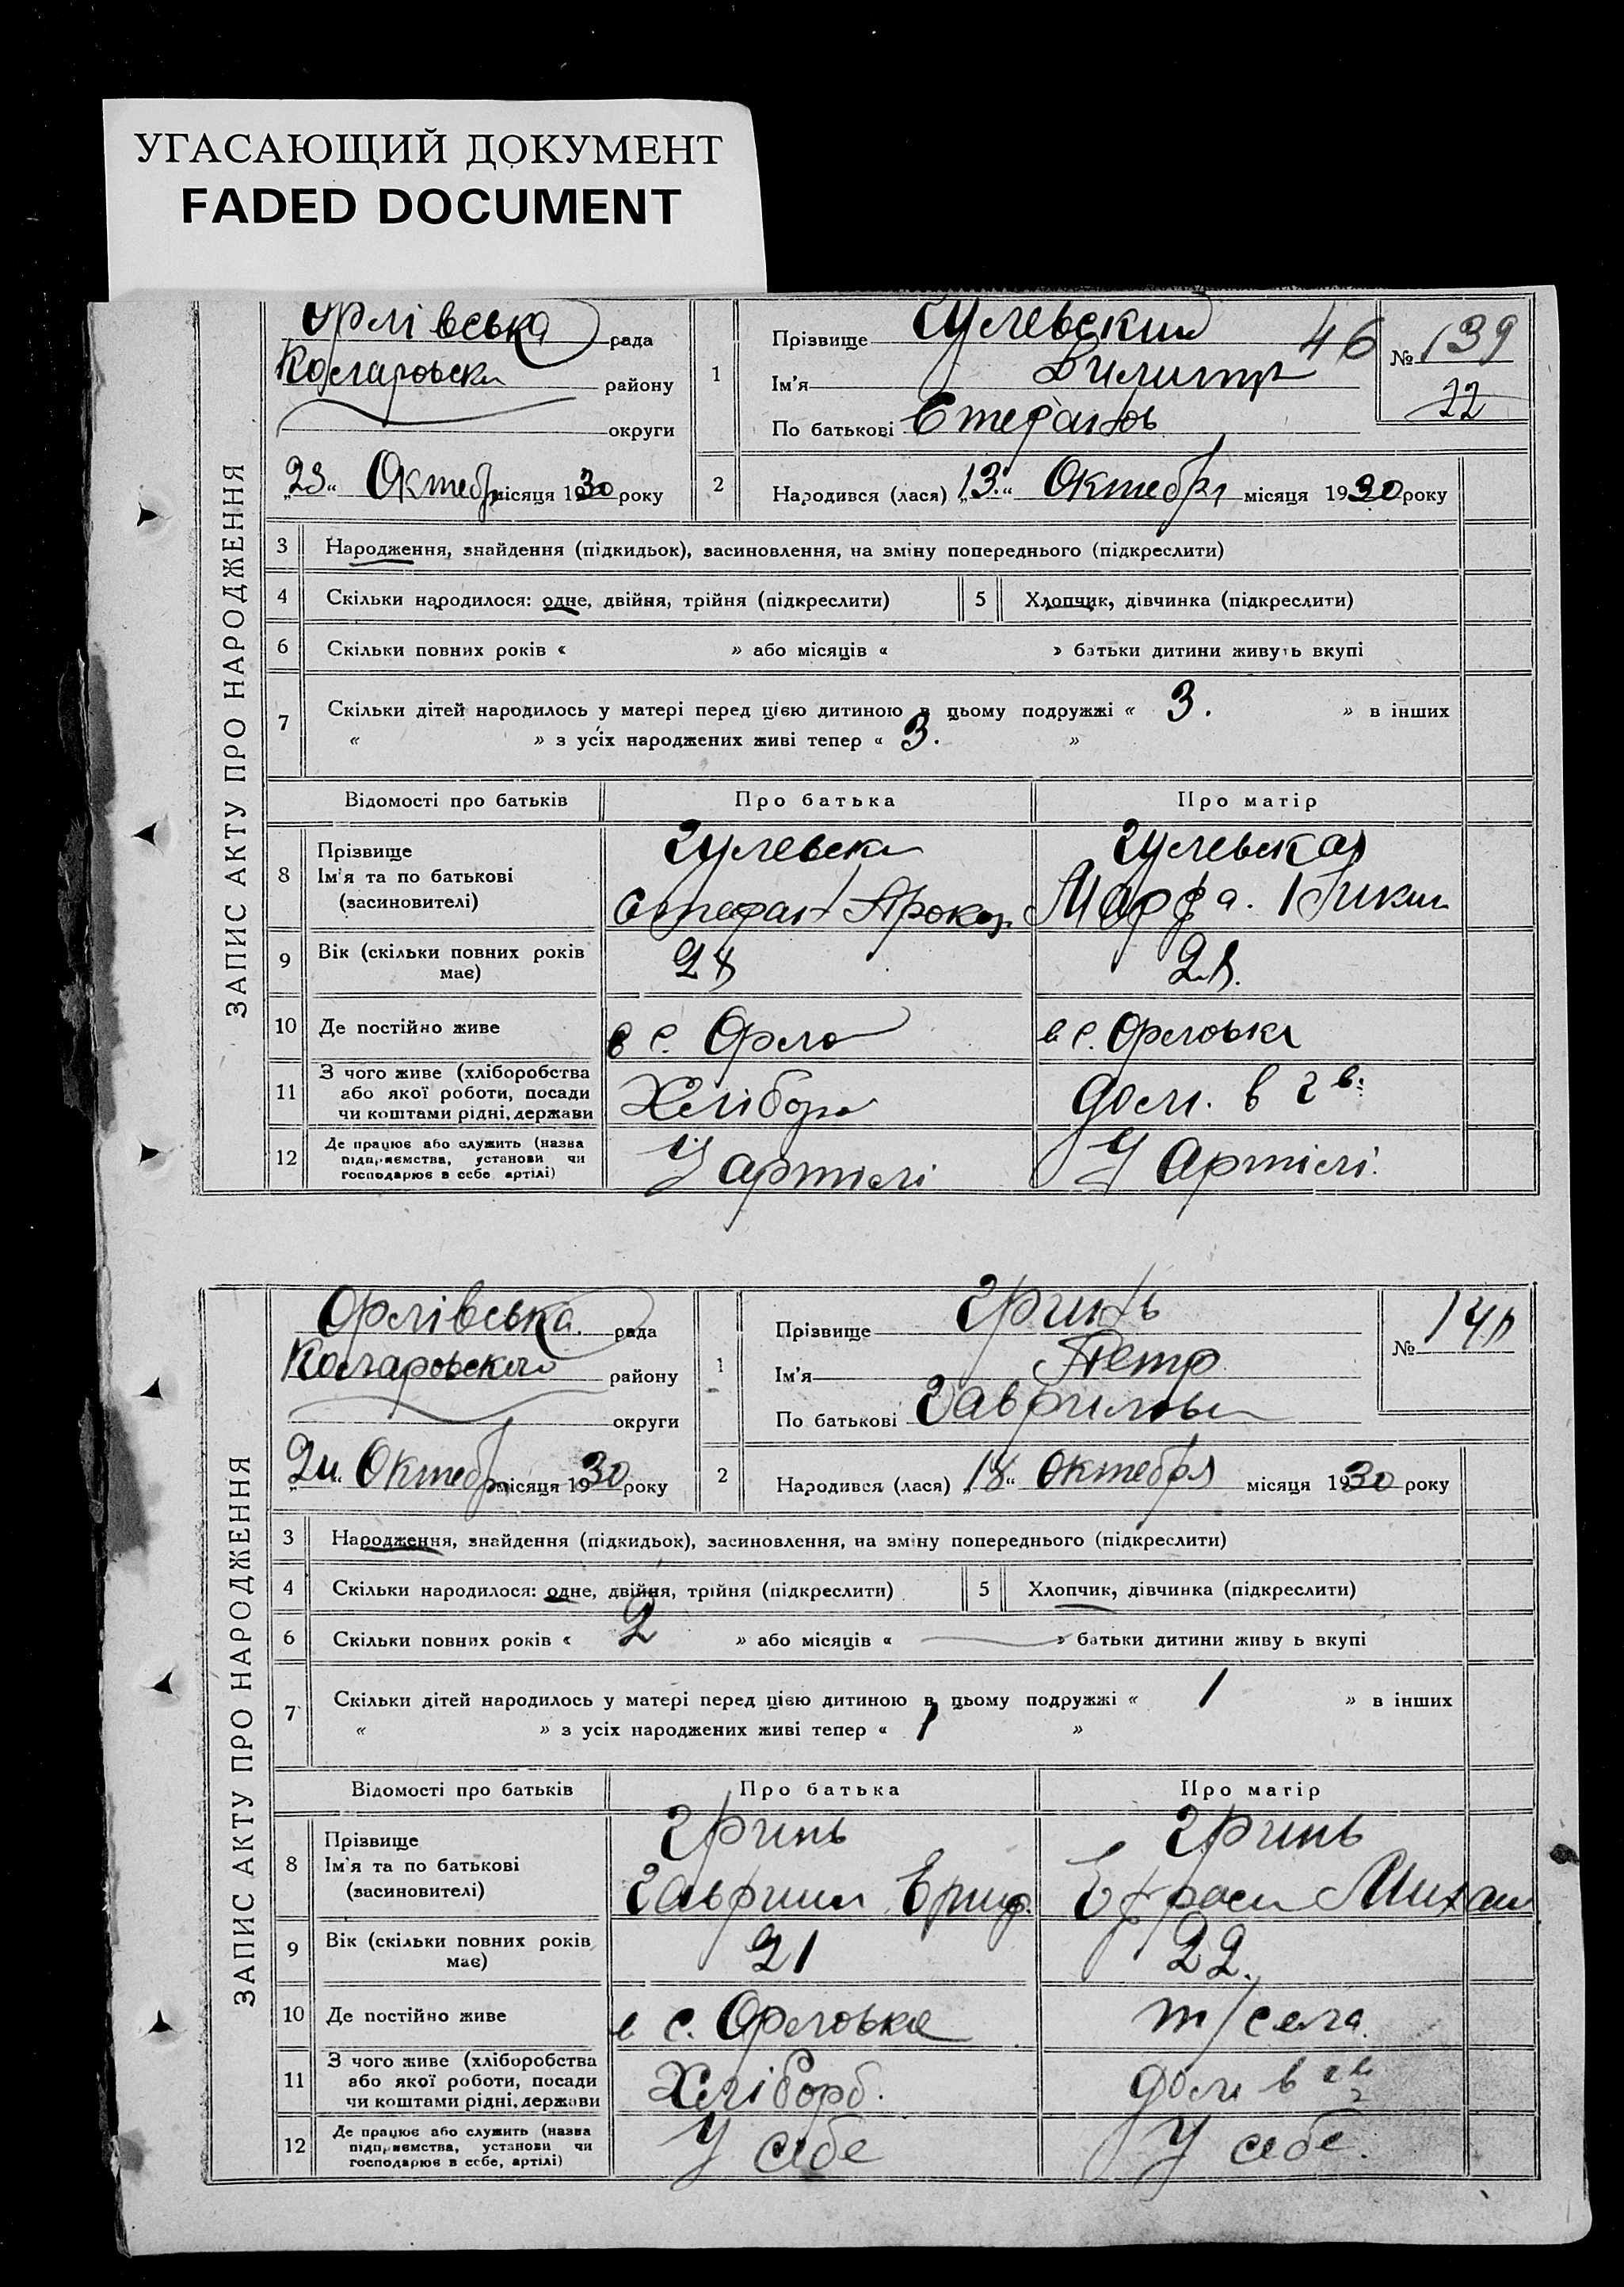 УГАСАЮЩИЙ ДОКУМЕНТ
FADED DOCUMENT
ЗАПИС АКТУ ПРО НАРОДЖЕННЯ
Орлівська рада
району
округи
„23“ Октебр місяця 1930 року
1
Прізвище Гулевский 46
Ім'я Димитр
По батькові Стефанов
№ 139
22
2
Народився (лася) „13“ Октебря місяця 1930 року
3 Народження, знайдення (підкидьок), засиновлення, на зміну попереднього (підкреслити)
4 Скільки народилося: одне, двійня, трійня (підкреслити) 5 Хлопчик, дівчинка (підкреслити)
6 Скільки повних років « » або місяців « » батьки дитини живуть вкупі
7 Скільки дітей народилось у матері перед цією дитиною в цьому подружжі « 3. » в інших
« » з усіх народжених живі тепер « 3. »
Відомості про батьків Про батька Про матір
8 Прізвище
Ім'я та по батькові
(засиновителі)
Гулевски
Стефан Прокоп
Гулевская
Марфа
9 Вік (скільки повних років
має)
28 28.
10 Де постійно живе в с. Орло в с. Орловка
11 З чого живе (хліборобства
або якої роботи, посади
чи коштами рідні, держави
Хлібор дом. в гв:
12 Де працює або служить (назва
підприємства, установи чи
господарює в себе, артілі)
У артилі У Артілі.
ЗАПИС АКТУ ПРО НАРОДЖЕННЯ
Орлівська рада
району
округи
„24“ Октебр місяця 1930 року
1
Прізвище Гринь
Ім'я Петр
По батькові Гаврилов
№ 140
2
Народився (лася) „18“ Октебря місяця 1930 року
3 Народження, знайдення (підкидьок), засиновлення, на зміну попереднього (підкреслити)
4 Скільки народилося: одне, двійня, трійня (підкреслити) 5 Хлопчик, дівчинка (підкреслити)
6 Скільки повних років « 2 » або місяців « — » батьки дитини живу ь вкупі
7 Скільки дітей народилось у матері перед цією дитиною в цьому подружжі « 1 » в інших
« » з усіх народжених живі тепер « 1 »
Відомості про батьків Про батька Про матір
8 Прізвище
Ім'я та по батькові
(засиновителі)
Гринь
Гавриил
Гринь
Ефроси Михаи
9 Вік (скільки повних років
має)
21 22.
10 Де постійно живе в с. Орловке т/села.
11 З чого живе (хліборобства
або якої роботи, посади
чи коштами рідні, держави
Хліборб. дом в гв
12 Де працює або служить (назва
підприємства, установи чи
господарює в себе, артілі)
У себе У себе.